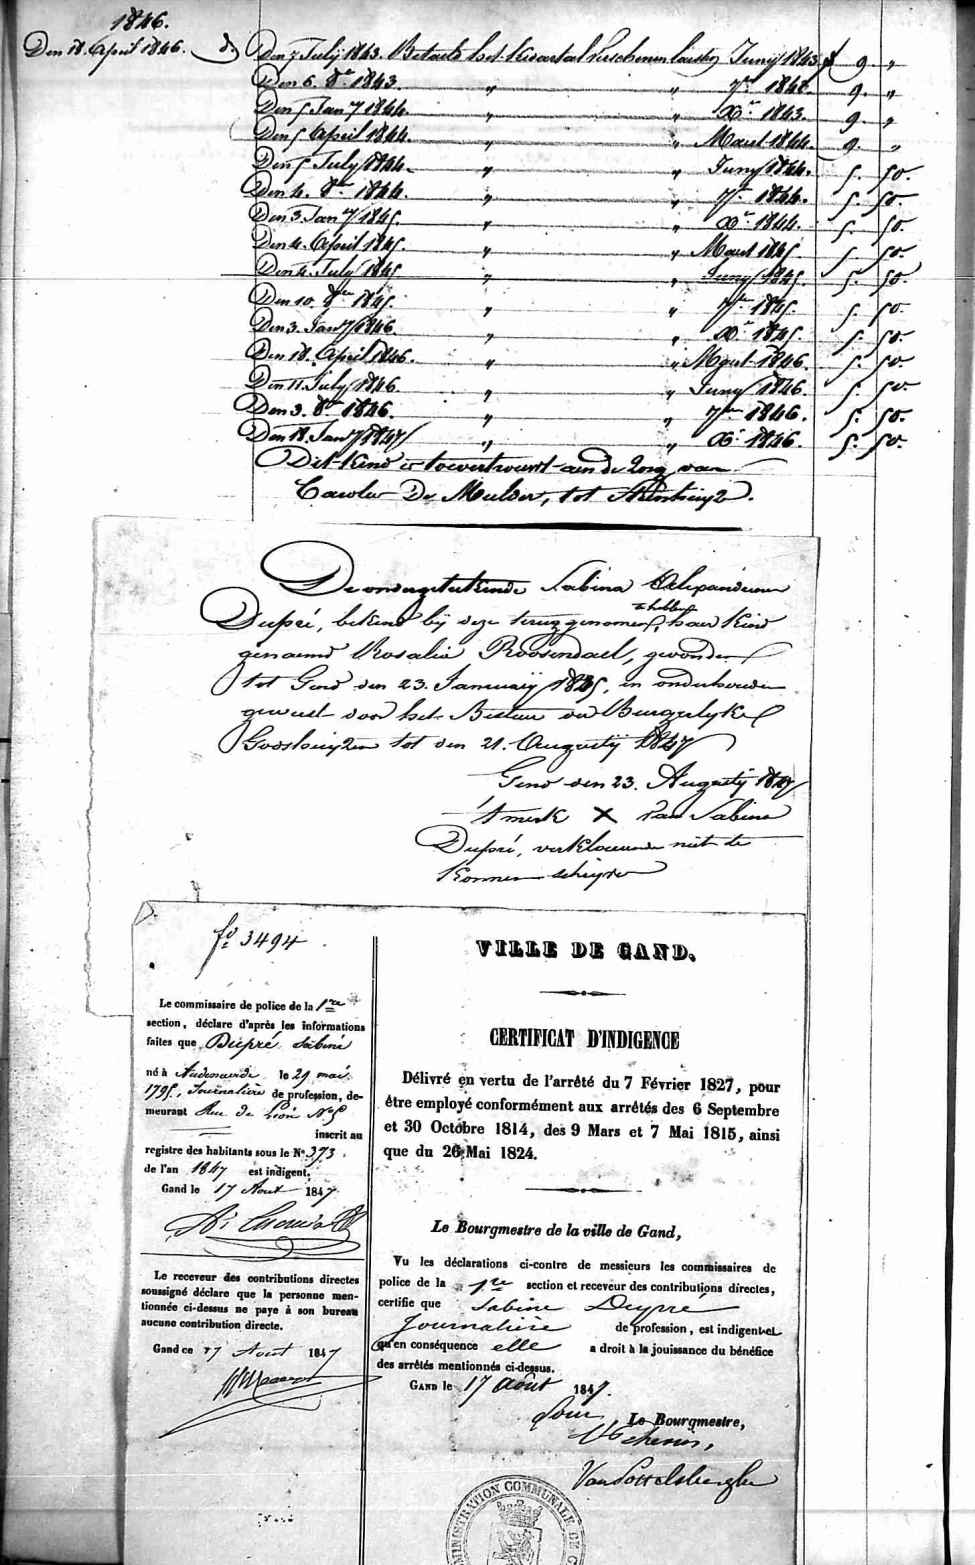 1846.
Den 18. April 1846.
Den 7 July 1843. Betaald het Kwartal verschenen laasten Juny 1843 f 9. "
Den 6. 8re 1843. " " 7re 1843. 9. "
Den 5 Jany 1844. " " Xr 1843. 9. "
Den 5 April 1844. " " Maart 1844. 9. "
Den 5 July 1844. " " Juny 1844. 5. 50.
Den 4. 8re 1844. " " 7re 1844. 5. 50.
Den 3. Jany 1845. " " Xr 1844. 5. 50.
Den 4. April 1845. " " Maart 1845. 5. 50.
Den 4. July 1845. " " Juny 1845. 5. 50.
Den 10. 8re 1845. " " 7re 1845. 5. 50.
Den 3. Jany 1846. " " Xr 1845. 5. 50.
Den 18. April 1846. " " Maart 1846. 5. 50.
Den 11. July 1846. " " Juny 1846. 5. 50.
Den 3. 8re 1846. " " 7re 1846. 5. 50.
Den 18. Jany 1847 " " Xr 1846. 5. 50.
Dit kind is toevertrouwt aen de zorg van
De Mulder, tot
De ondergeteekende Sabina Alexandrina
Dupré, bekend bij deze teruggenomen te hebben, haer kind
genaemd Rosalia Roosendael, gevonden
tot Gend den 23. January 1835, en onderhouden
geweest door het Bestuur der Burgerlyke
Godshuyzen tot den 21. Augusty 1847
Gend den 23. Augusty 1847
't merk X van Sabina
Dupré, verklaerende niet te
konnen schryven
fo 3494
Le commissaire de police de la 1re
section, déclare d'après les informations
faites que Dupré Sabine
né à Audenarde le 29 mai
1795, Journalière de profession, de-
meurant Rue de Lion No 5
inscrit au
registre des habitants sous le No 373.
de l'an 1847 est indigent.
Gand le 17 Aout 1847
Le receveur des contributions directes
soussigné déclare que la personne men-
tionnée ci-dessus ne paye à son bureau
aucune contribution directe.
Gand ce 17 Aout 1847
VILLE DE GAND.
CERTIFICAT D'INDIGENCE
Délivré en vertu de l'arrêté du 7 Février 1827, pour
être employé conformément aux arrêtés des 6 Septembre
et 30 Octobre 1814, des 9 Mars et 7 Mai 1815, ainsi
que du 26 Mai 1824.
Le Bourgmestre de la ville de Gand,
Vu les déclarations ci-contre de messieurs les commissaires de
police de la 1re section et receveur des contributions directes,
certifie que Sabine Dupré
Journalière de profession, est indigent et
qu'en conséquence elle a droit à la jouissance du bénéfice
des arrêtés mentionnés ci-dessus.
GAND le 17 août 1847.
Pour Le Bourgmestre,
L'échevin,
Van Pottelsberghe
ADMINISTRATION COMMUNALE DE G